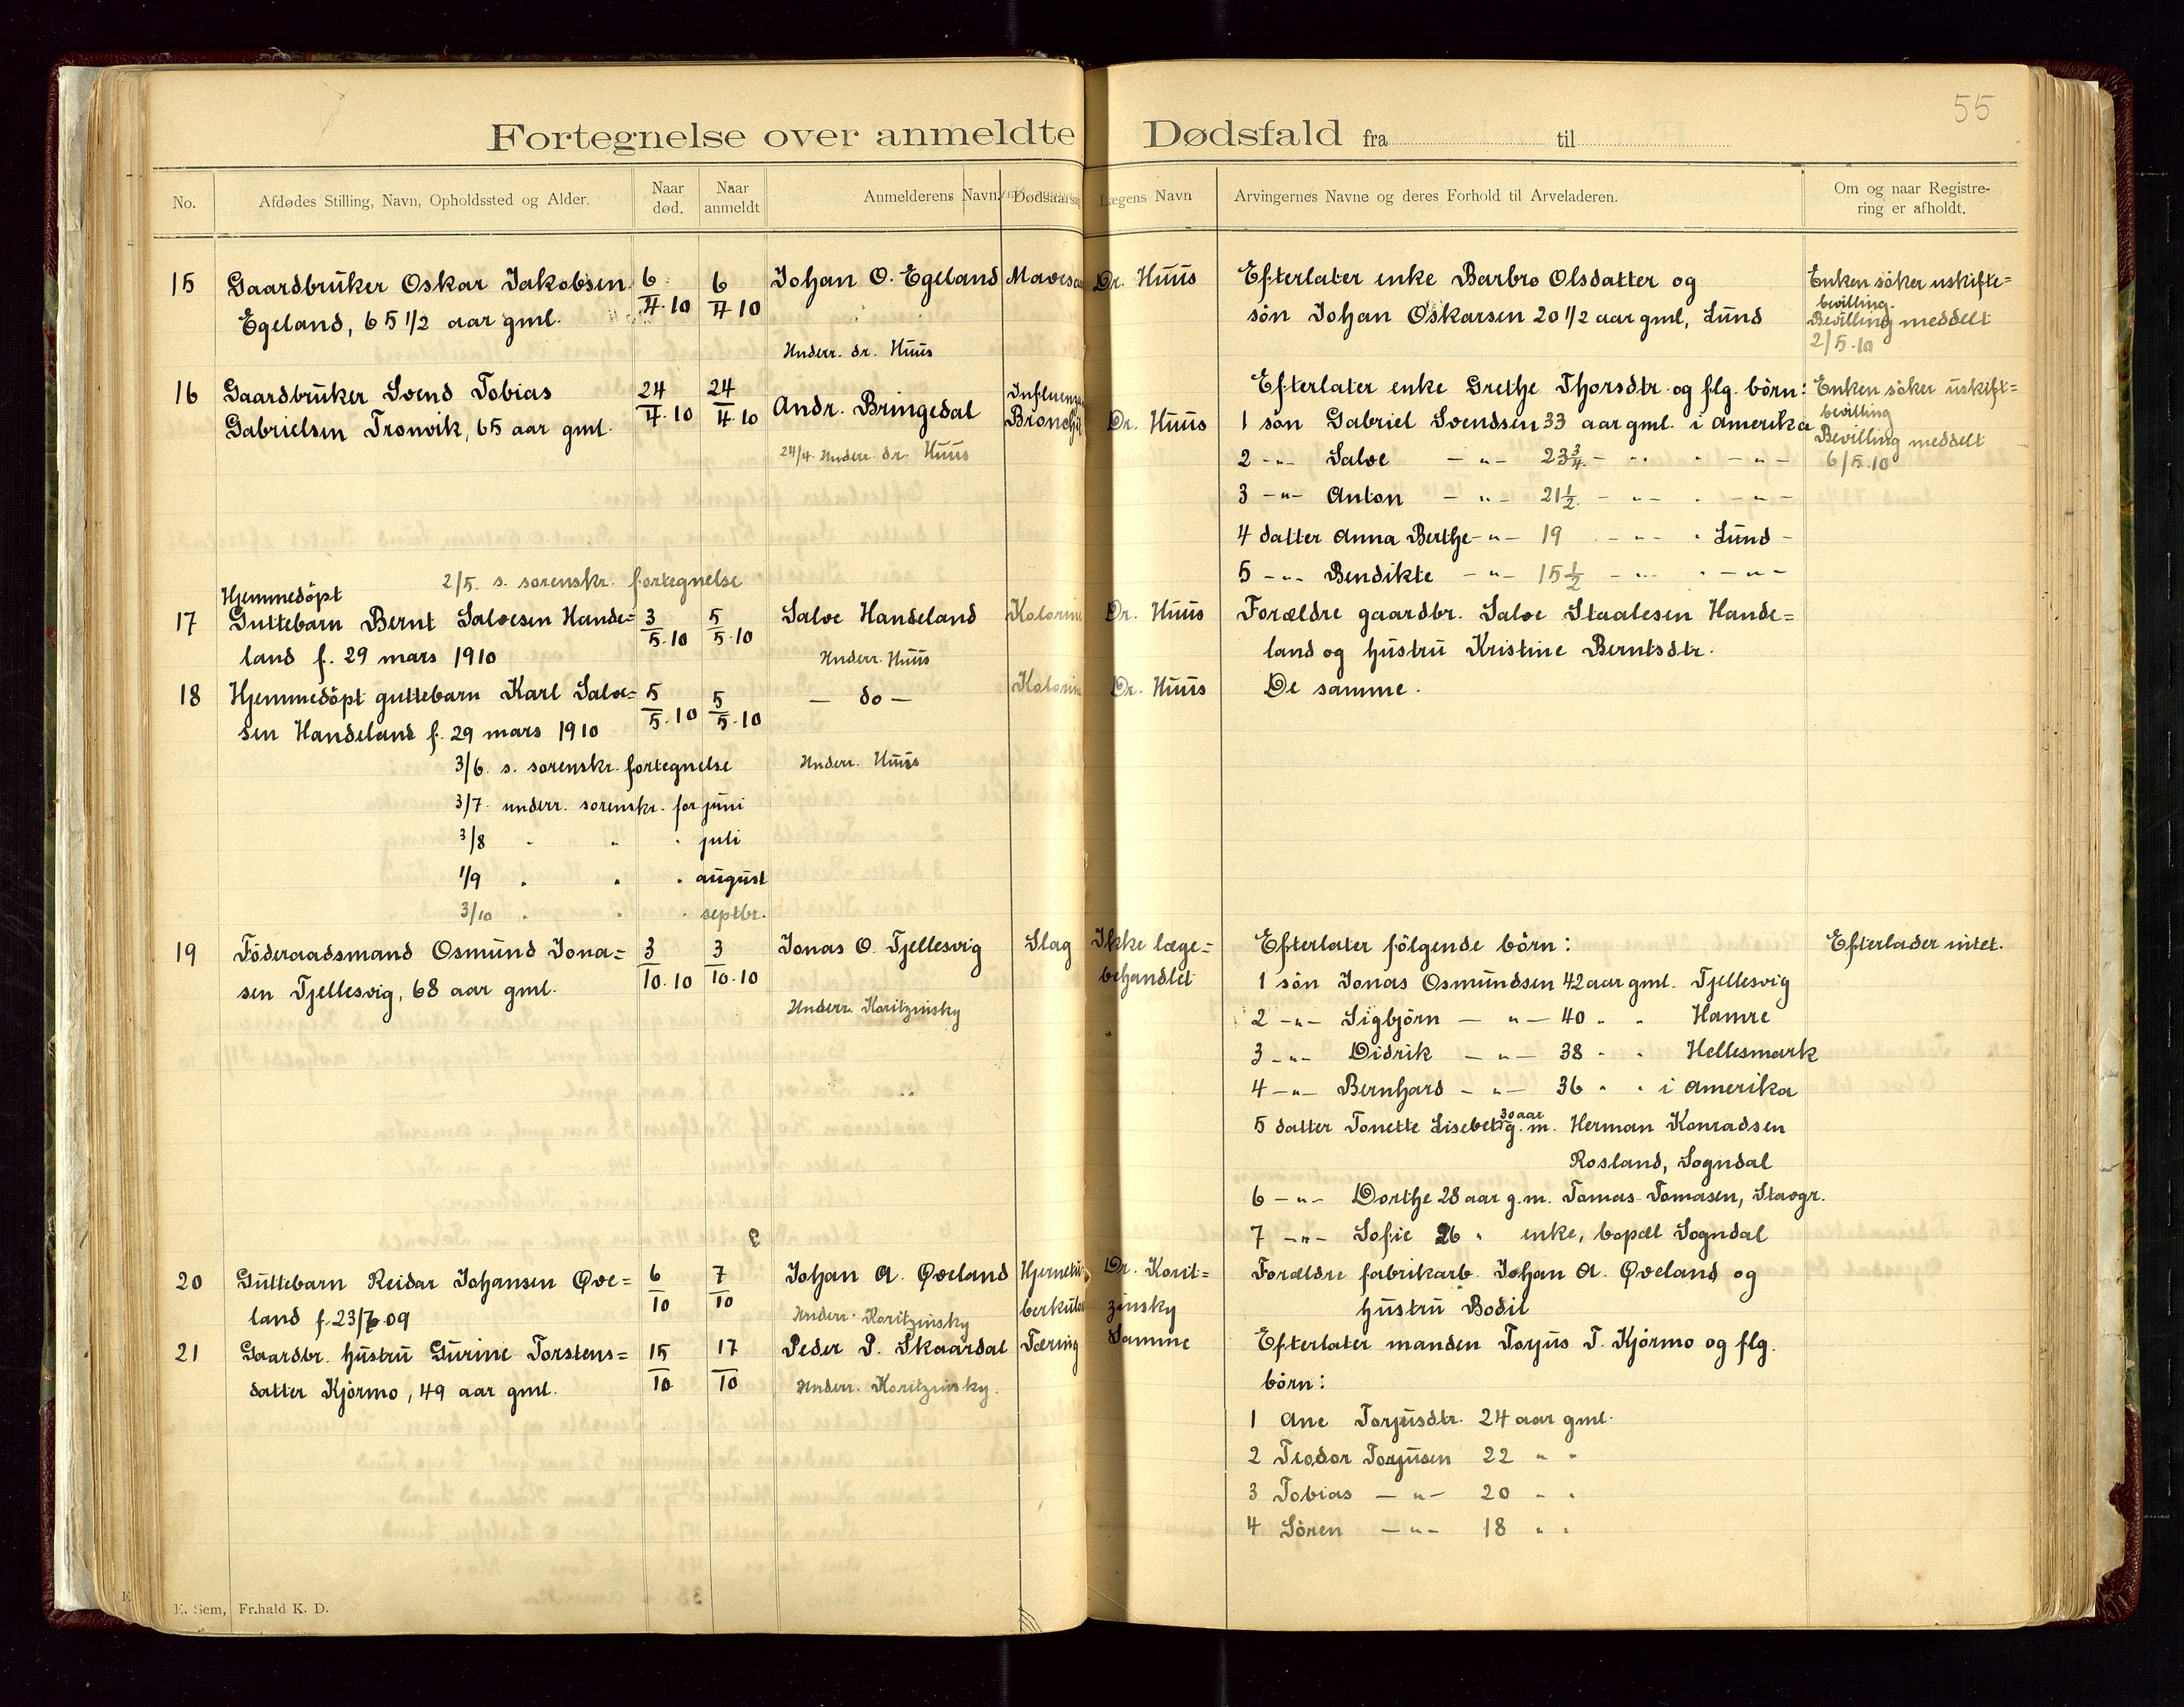 55
Fortegnelse over anmeldte Dødsfald fra til
No. Afdødes Stilling, Navn, Opholdssted og Alder. Naar død. Naar anmeldt Anmelderens Navn. Dødsaarsag Lægens Navn Arvingernes Navne og deres Forhold til Arveladeren. Om og naar Registrering er afholdt.
15 Gaardbruker Oskar Jakobsen 6 6 Johan O. Egeland Dr. Huus Efterlater enke Barbro Olsdatter og Enken söker uskifte=
Egeland, 65 1/2 aar gml. 4.10 4.10 sön Johan Oskarsen 20 1/2 aar gml, Lund bevilling.
Bevilling meddelt
Underr. dr. Huus 2/5.10
16 Gaardbruker Svend Tobias 24 24 Andr. Bringedal Efterlater enke Grethe Thorsdtr. og flg. börn: Enken söker uskift=
Gabrielsen Tronvik, 65 aar gml. 4.10 4.10 Dr. Huus 1 sön Gabriel Svendsen 33 aar gml. i Amerika bevilling
24/4. Underr. dr. Huus Bevilling meddelt
2 -"- Salve -"- 23 3/4 - " - " - "- 6/5.10
3 -"- Anton -"- 21 1/2 - "- " - "-
4 datter Anna Berthe -"- 19 - "- " Lund -
2/5. s. sorenskr. fortegnelse 5 -"- Bendikte -"- 15 1/2 - "- " - "-
Hjemmedöpt
17 Guttebarn Bernt Salvesen Hande= 3 5 Salve Handeland Kolerine Dr. Huus Forældre gaardbr. Salve Staalesen Hande=
land f. 29 mars 1910 5.10 5.10 Underr. Huus land og hustru Kristine Berntsdtr.
18 Hjemmedöpt guttebarn Karl Salve= 5 5 - do - Kolerine Dr. Huus De samme.
sen Handeland f. 29 mars 1910 5.10 5.10
3/6. s. sorenskr. fortegnelse Underr. Huus
3/7. underr. sorenskr. for juni
3/8 " " " juli
1/9 " " " august
3/10 " " " septbr.
19 Föderaadsmand Osmund Jona= 3 3 Jonas O. Tjellesvig Slag Ikke læge= Efterlater fölgende börn: Efterlader intet.
sen Tjellesvig, 68 aar gml. 10.10 10.10 behandlet 1 sön Jonas Osmundsen 42 aar gml. Tjellesvig
Underr. Koritzinsky
2 -"- Sigbjörn - "- 40 " " Hamre
3 -"- Didrik - "- 38 " " Hellesmark
4 -"- Bernhard - "- 36 " " i Amerika
5 datter Tonette Lisebet 30 aar g.m. Herman Konradsen
Rosland, Sogndal
6 -"- Dorthe 28 aar g.m. Tomas Tomasen, Stavgr.
7 -"- Sofie 26 " enke, bopæl Sogndal
20 Guttebarn Reidar Johansen Qve= 6 7 Johan A. Qveland Hjernetu- Dr. Korit= Forældre fabrikarb. Johan A. Qveland og
land f. 23/7.09 10 10 Underr. Koritzinsky berkulose zinsky hustru Bodil
21 Gaardbr. hustru Gurine Torstens= 15 17 Peder P. Skaardal Tæring Samme Efterlater manden Torjus T. Kjörmo og flg.
datter Kjörmo, 49 aar gml. 10 10 Underr. Koritzinsky. börn:
1 Ane Torjusdtr. 24 aar gml.
2 Teodor Torjusen 22 " "
3 Tobias - "- 20 " "
4 Sören - "- 18 " "
E. Sem, Fr.hald K. D.